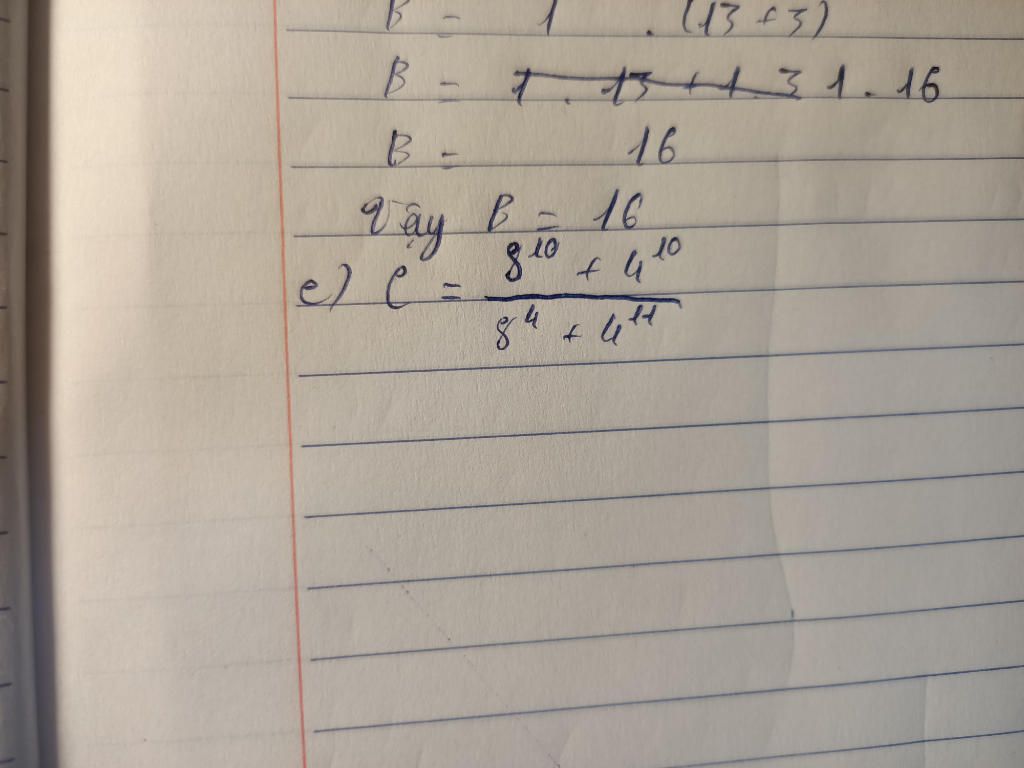 B = 1 . (13 + 3)
B = 1 . 13 + 1 . 3 1 . 16
B = 16
Vậy B = 16
e) C = \frac{8^{10} + 4^{10}}{8^{4} + 4^{11}}